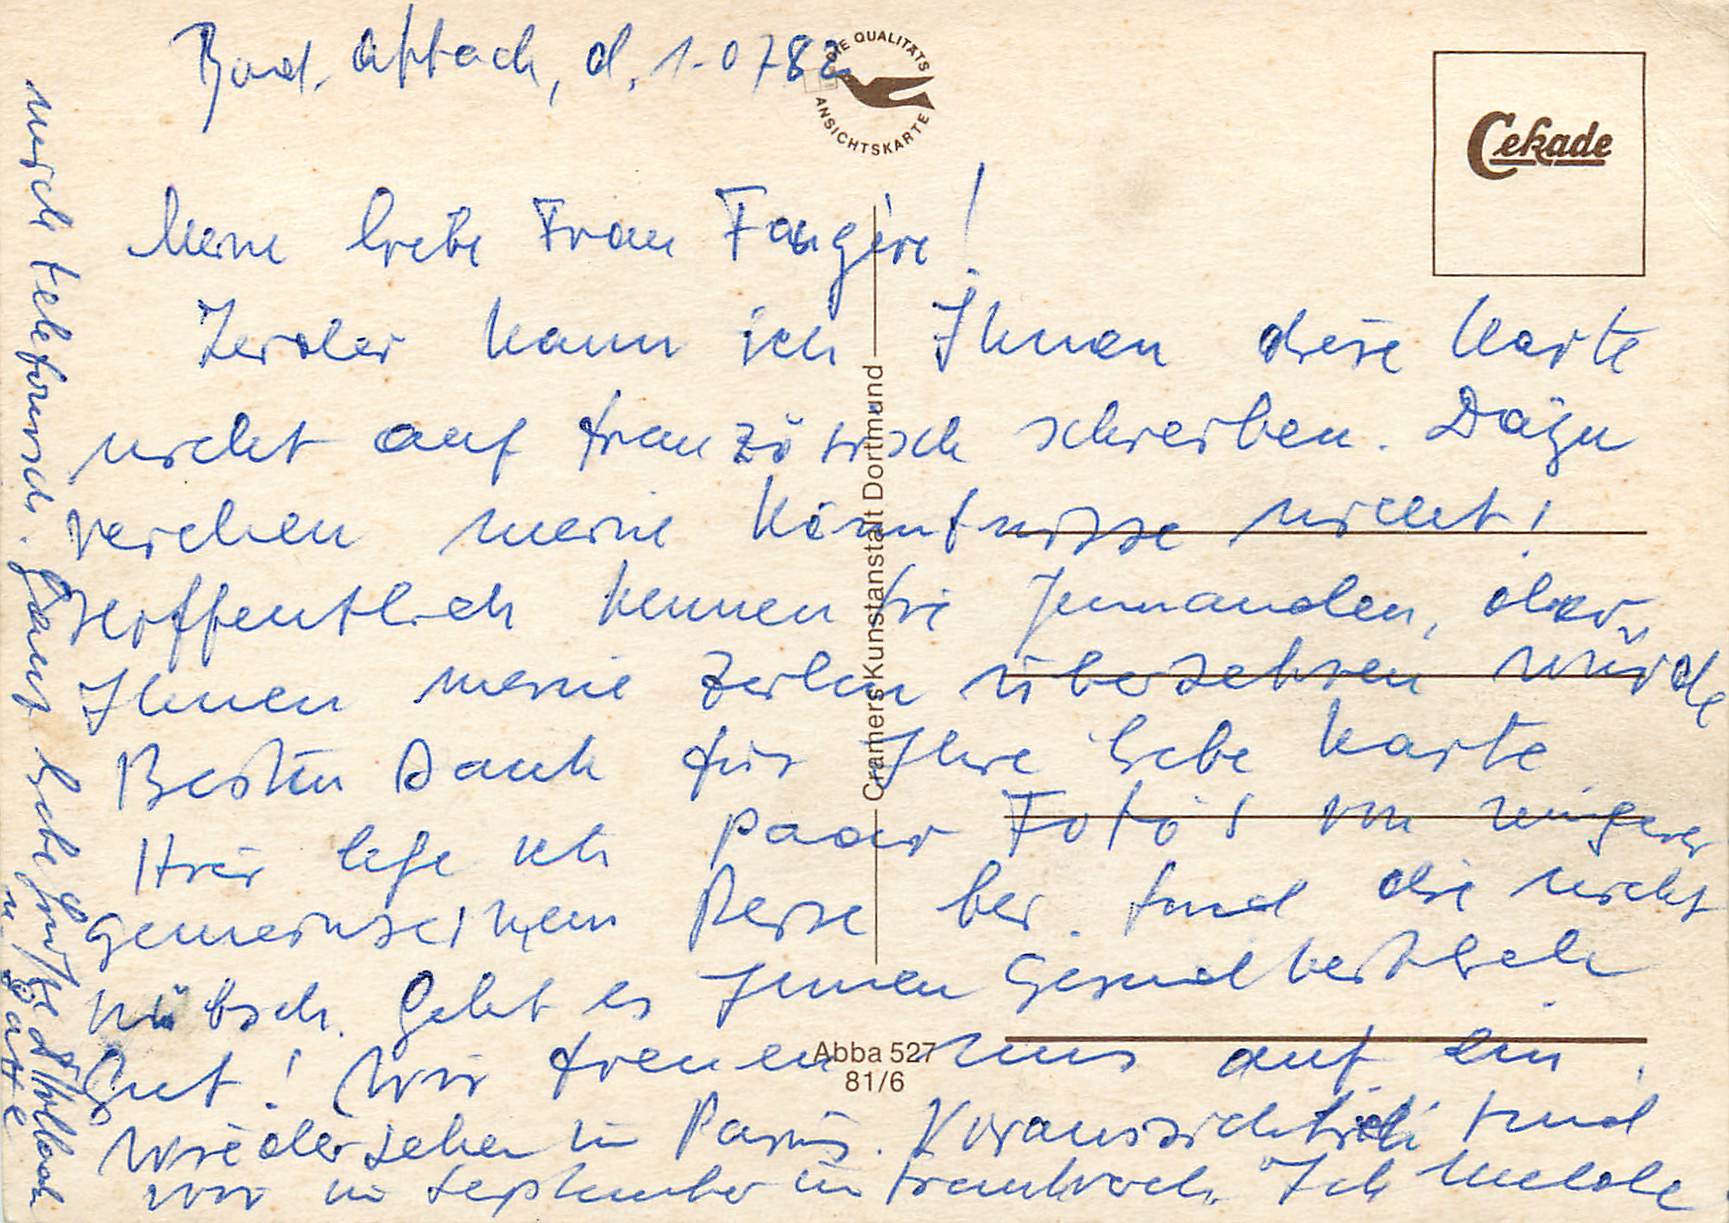 Bad. Abbach, d. 1.0782
DIE QUALITÄTS
ANSICHTSKARTE
Cekade
Meine liebe Frau Faugère!
Leider kann ich Ihnen diese Karte
nicht auf französisch schreiben. Dazu
reichen meine Kenntnisse nicht!
Hoffentlich kennen Sie Jemanden, der
Ihnen meine Zeilen übersetzen würde
Besten Dank für Ihre liebe Karte
Hier lege ich paar Foto's von unserer
gemeinsamen Reise bei. Sind die nicht
hübsch. Geht es Ihnen Gesundheitlich
Gut! Wir freuen uns auf ein
Wiedersehen in Paris. Voraussichtlich sind
wir im September in Frankreich. Ich melde
mich telefonisch. Ganz liebe Grüße
u. Gatte
Cramers Kunstanstalt Dortmund
Abba 527
81/6